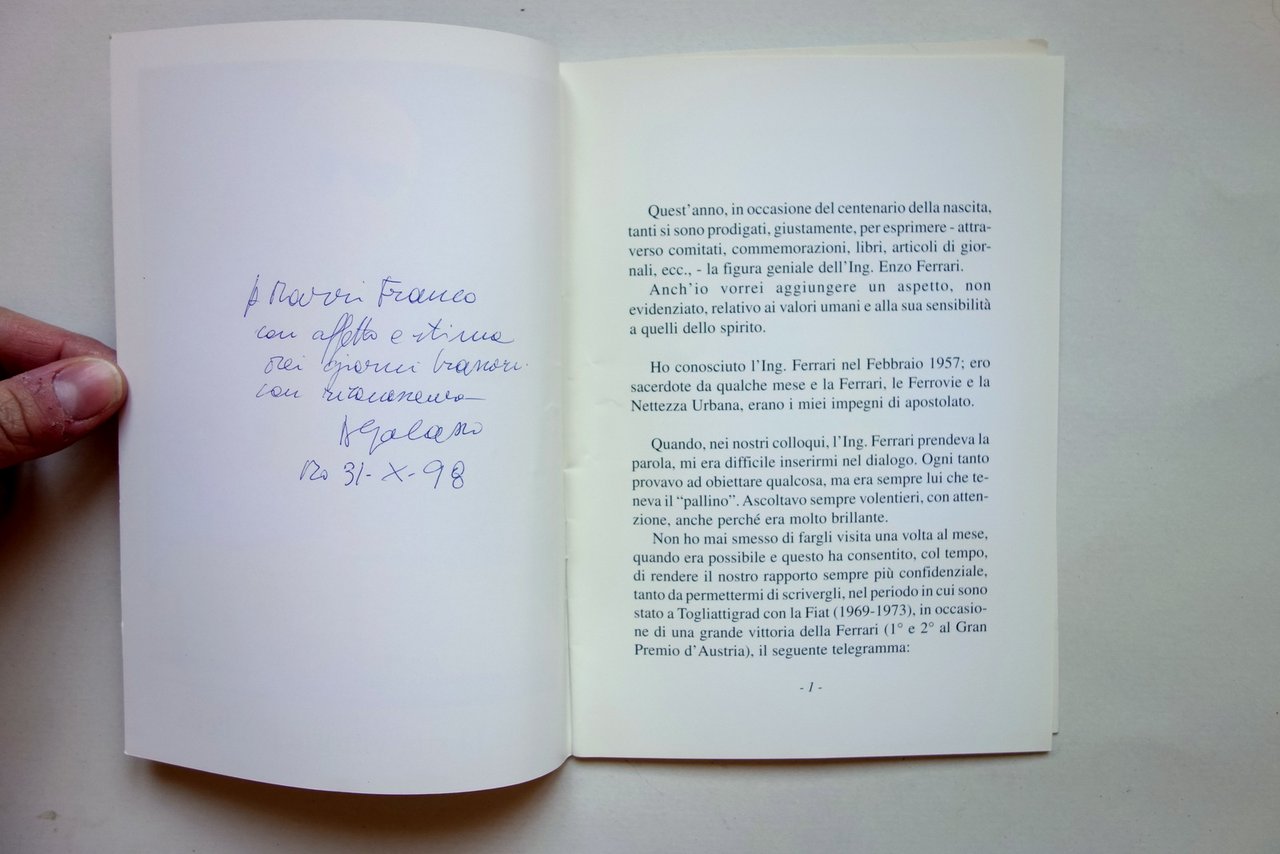 A Marri Franco
con affetto e stima
dei giorni
con riconoscenza
Mo 31-X-98
Quest'anno, in occasione del centenario della nascita,
tanti si sono prodigati, giustamente, per esprimere - attra-
verso comitati, commemorazioni, libri, articoli di gior-
nali, ecc., - la figura geniale dell'Ing. Enzo Ferrari.
Anch'io vorrei aggiungere un aspetto, non
evidenziato, relativo ai valori umani e alla sua sensibilità
a quelli dello spirito.
Ho conosciuto l'Ing. Ferrari nel Febbraio 1957; ero
sacerdote da qualche mese e la Ferrari, le Ferrovie e la
Nettezza Urbana, erano i miei impegni di apostolato.
Quando, nei nostri colloqui, l'Ing. Ferrari prendeva la
parola, mi era difficile inserirmi nel dialogo. Ogni tanto
provavo ad obiettare qualcosa, ma era sempre lui che te-
neva il “pallino”. Ascoltavo sempre volentieri, con atten-
zione, anche perché era molto brillante.
Non ho mai smesso di fargli visita una volta al mese,
quando era possibile e questo ha consentito, col tempo,
di rendere il nostro rapporto sempre più confidenziale,
tanto da permettermi di scrivergli, nel periodo in cui sono
stato a Togliattigrad con la Fiat (1969-1973), in occasio-
ne di una grande vittoria della Ferrari (1° e 2° al Gran
Premio d'Austria), il seguente telegramma:
- 1 -